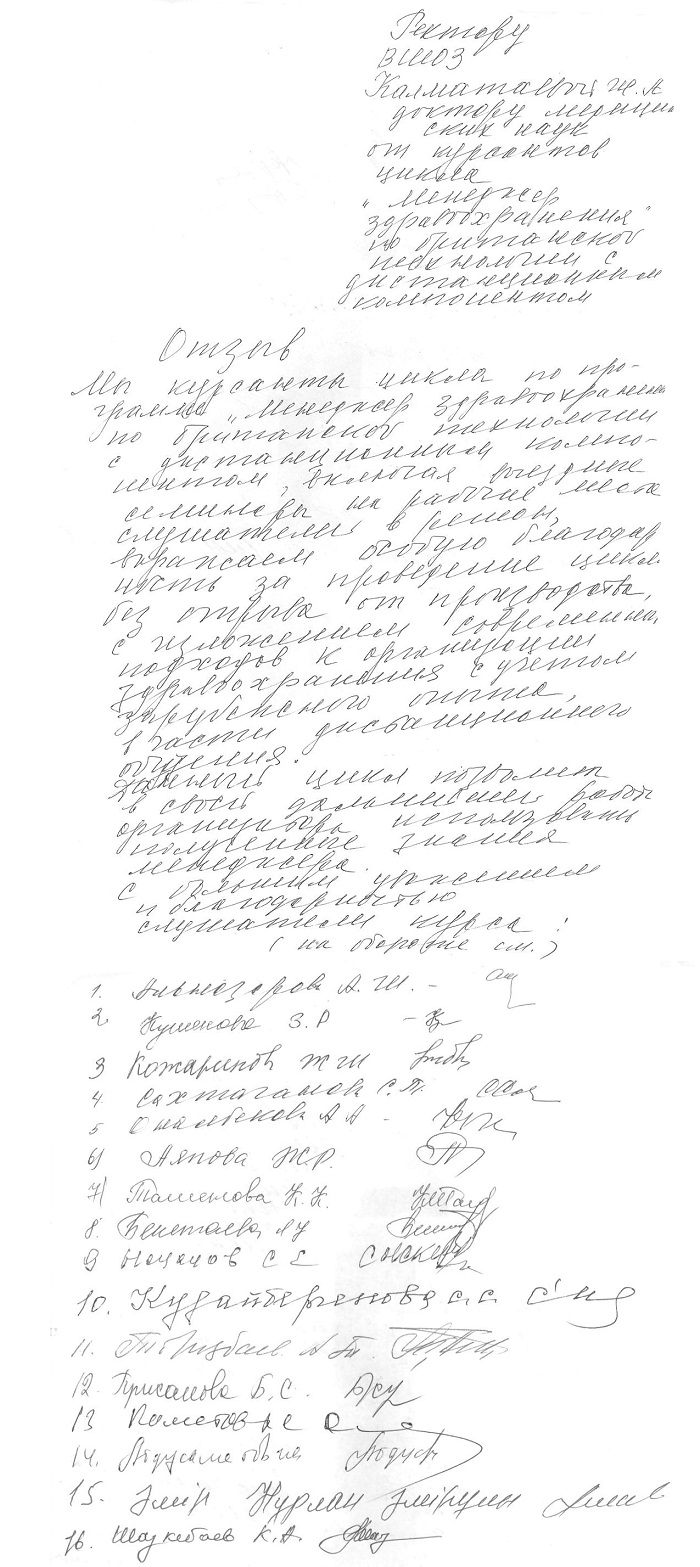 Ректору
ВШОЗ
Калматаевой Ж.А
доктору медицин
ских наук
от курсантов
цикла
"Менеджер
здравоохранения"
по британской
технологии с
дистанционным
компонентом
Отзыв
Мы курсанты цикла по про-
грамме "Менеджер здравоохранения
по британской технологии
с дистанционным компо-
нентом, включая выездные
семинары на рабочие места
слушателей в регион,
выражаем особую благодар
ность за проведение цикла
без отрыва от производства,
с изложением современных
подходов к организации
здравоохранения с учетом
зарубежного опыта,
в части дистанционного
общения.
Данный цикл позволит
в своей дальнейшей работе
организатора использовать
полученные знания
менеджера.
С большим уважением
и благодарностью
слушатели курса:
(на обороте см.)
1. А.Ш. -
2 З.Р -
3 Кожаринов ЖГИ
4. С.П.
5 А А -
6) Аяпова Ж.Р.
7) Ташенова К.К.
8.
9 С Е
10. Кудайбергенова с.с.
11. А.Т.
12. Б.С.
13
14.
15. Әмір Нурлан Әмірұлы
16. Шаукебаев К.А.